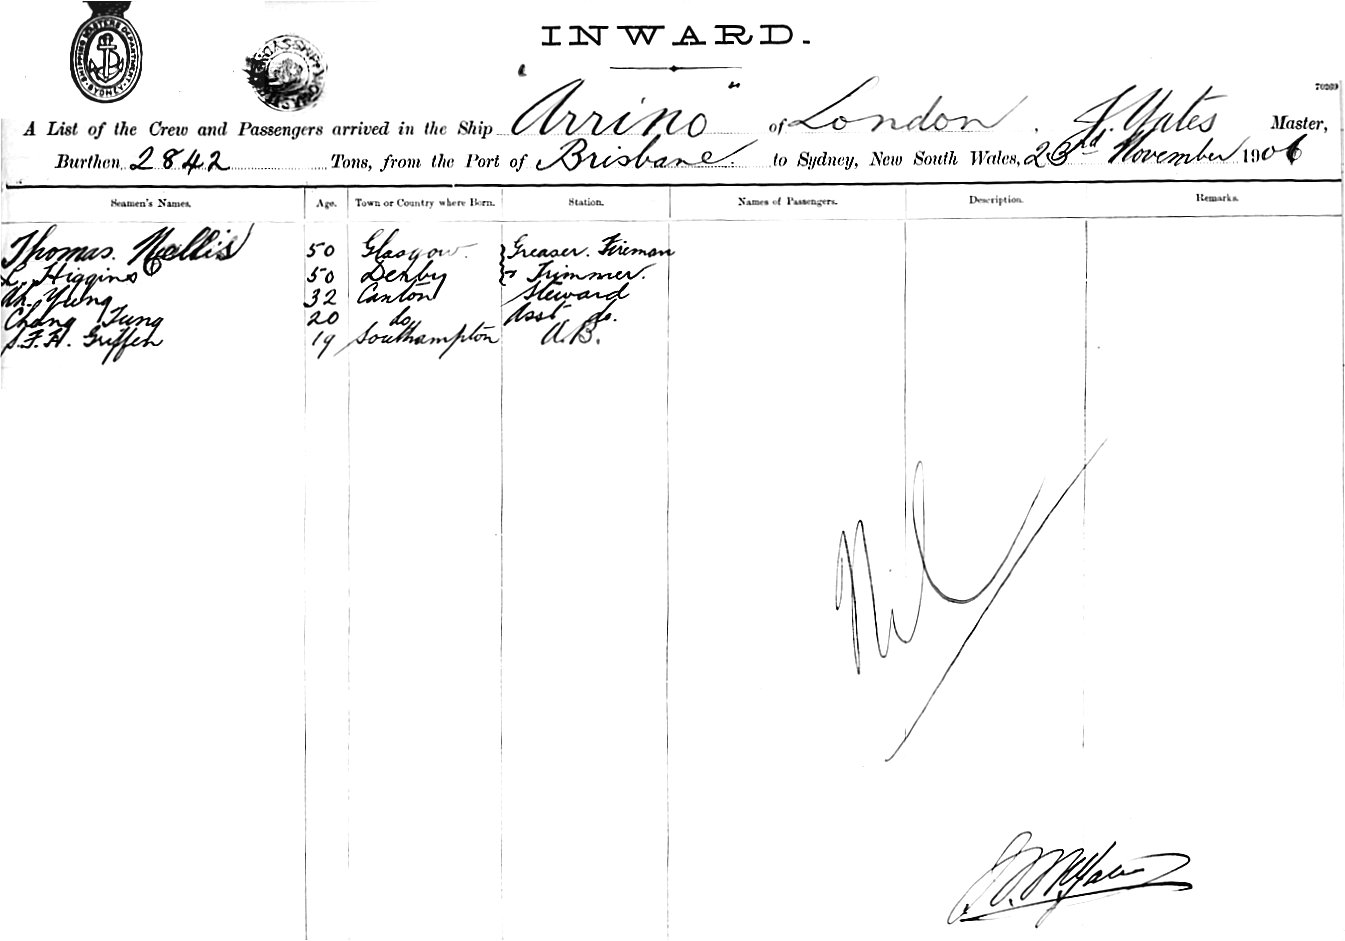 SHIPPING MASTERS DEPARTMENT
SYDNEY
INWARD.
70269
A List of the Crew and Passengers arrived in the Ship "Arrino" of London. J. Yates Master,
Burthen 2842 Tons, from the Port of Brisbane. to Sydney, New South Wales, 23rd November 1906
Seamen's Names. Age. Town or Country where Born. Station. Names of Passengers. Description. Remarks.
Thomas. Nallis 50 Glasgow. Greaser. Fireman
L. Higgins 50 Denby & Trimmer.
Ah. Yung 32 Canton Steward
Chong Tung 20 do Asst do.
S.F.H. Griffen 19 Southampton A.B.
Nil